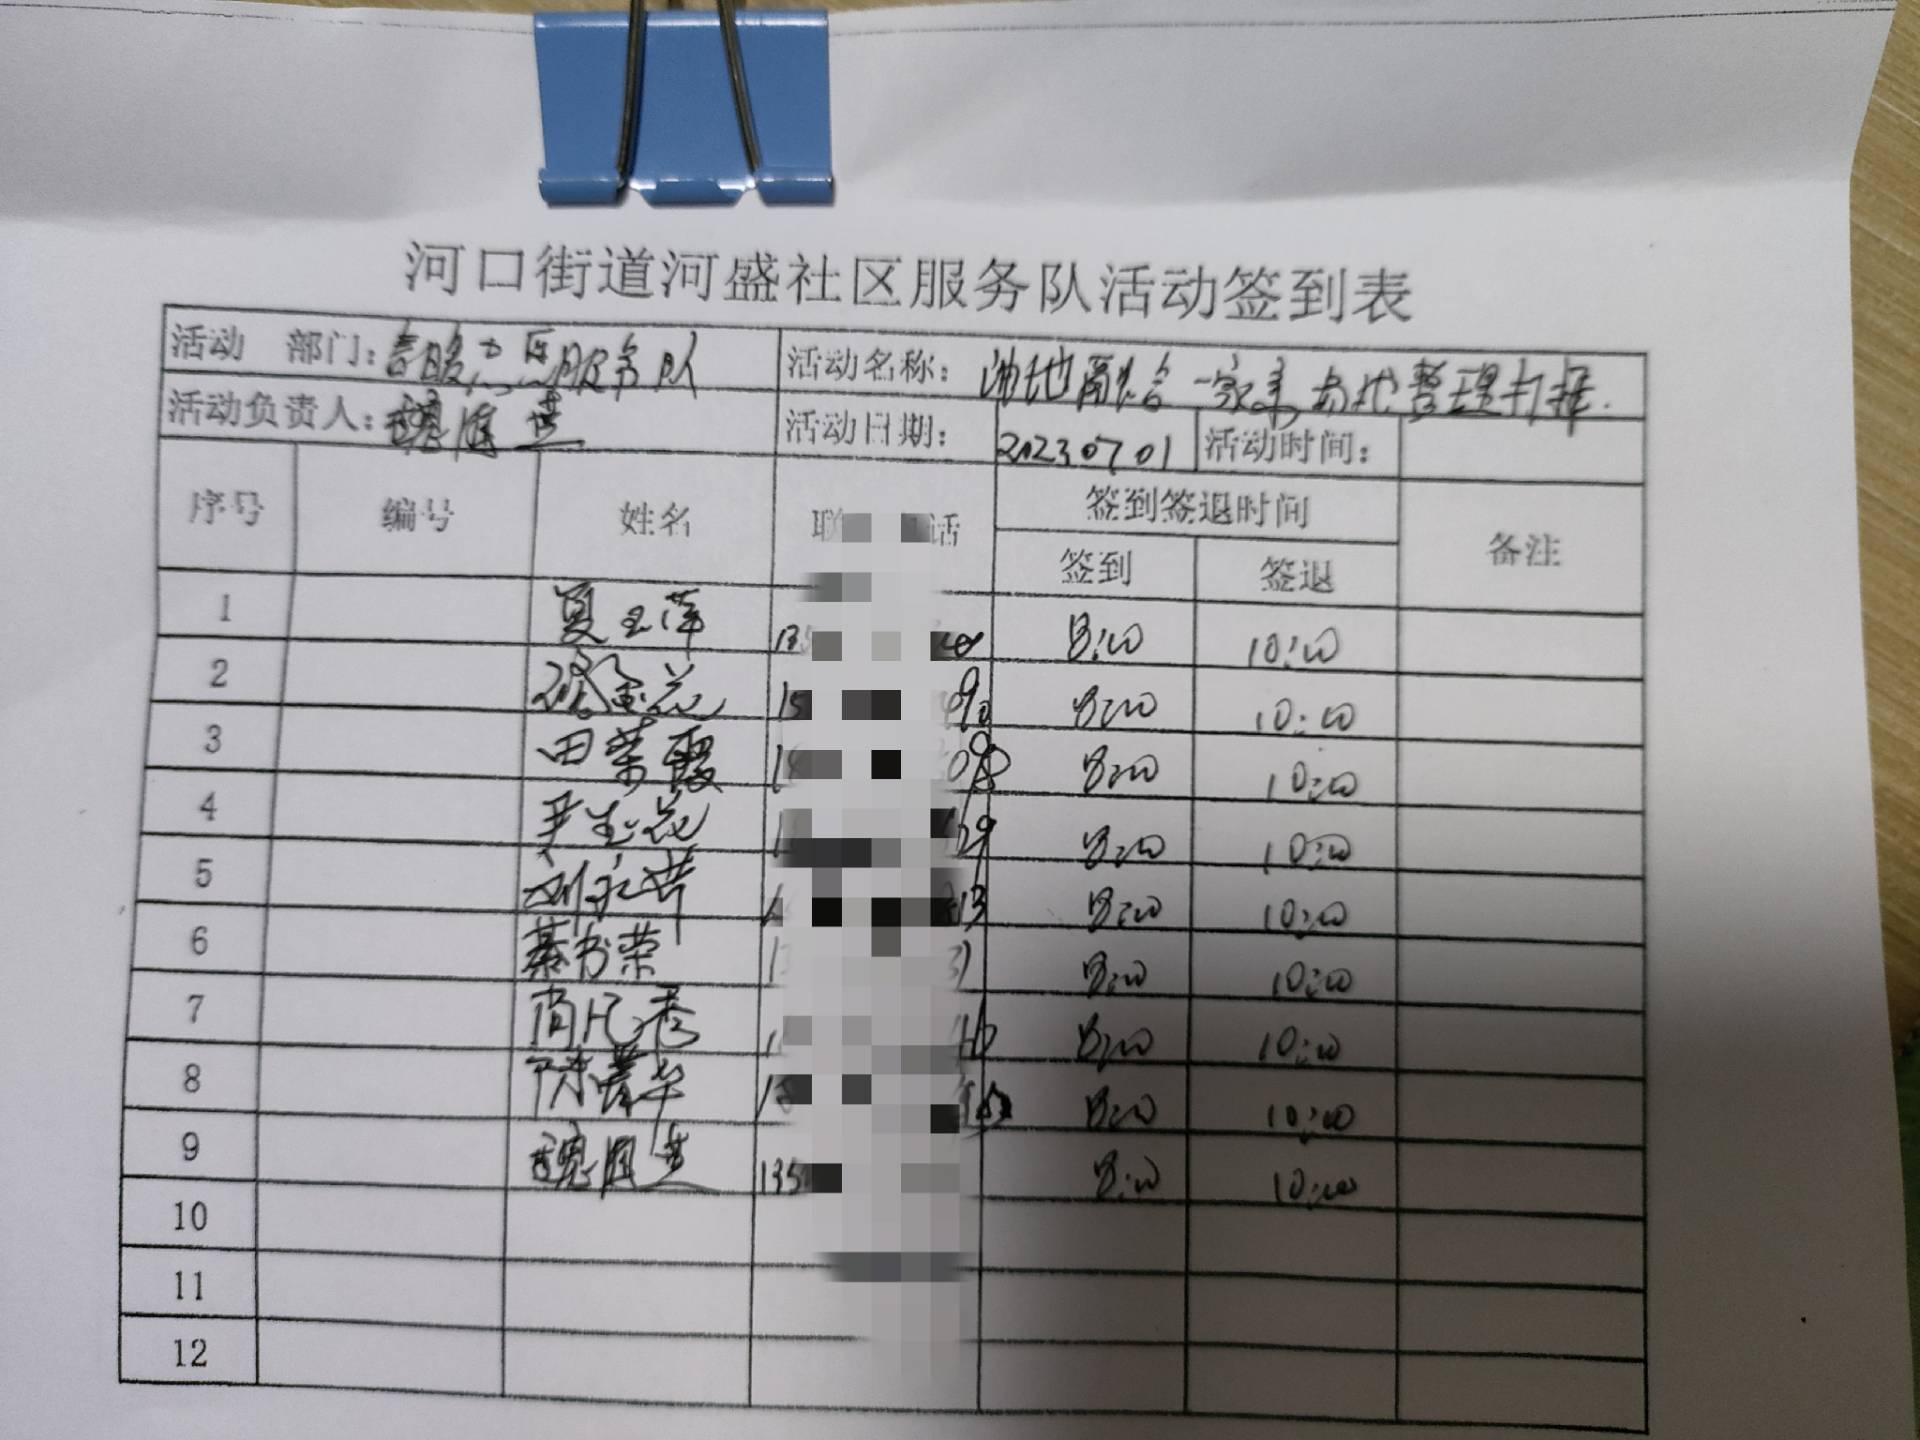 河口街道河盛社区服务队活动签到表
活动 部门: 服务队 活动名称: 油地融合一家亲 场地整理打摆.
活动负责人: 活动日期: 20230701 活动时间:
序号 编号 姓名 联 话 签到签退时间 备注
签到 签退
1 夏玉萍 135 8:00 10:00
2 金花 15 90 8:00 10:00
3 田荣霞 18 098 8:00 10:00
4 尹金花 1 129 8:00 10:00
5 刘 1 13 8:00 10:00
6 綦书荣 13 31 8:00 10:00
7 尚凡香 1 8:00 10:00
8 陈 华 18 8:00 10:00
9 魏 芝 135 8:00 10:00
10
11
12